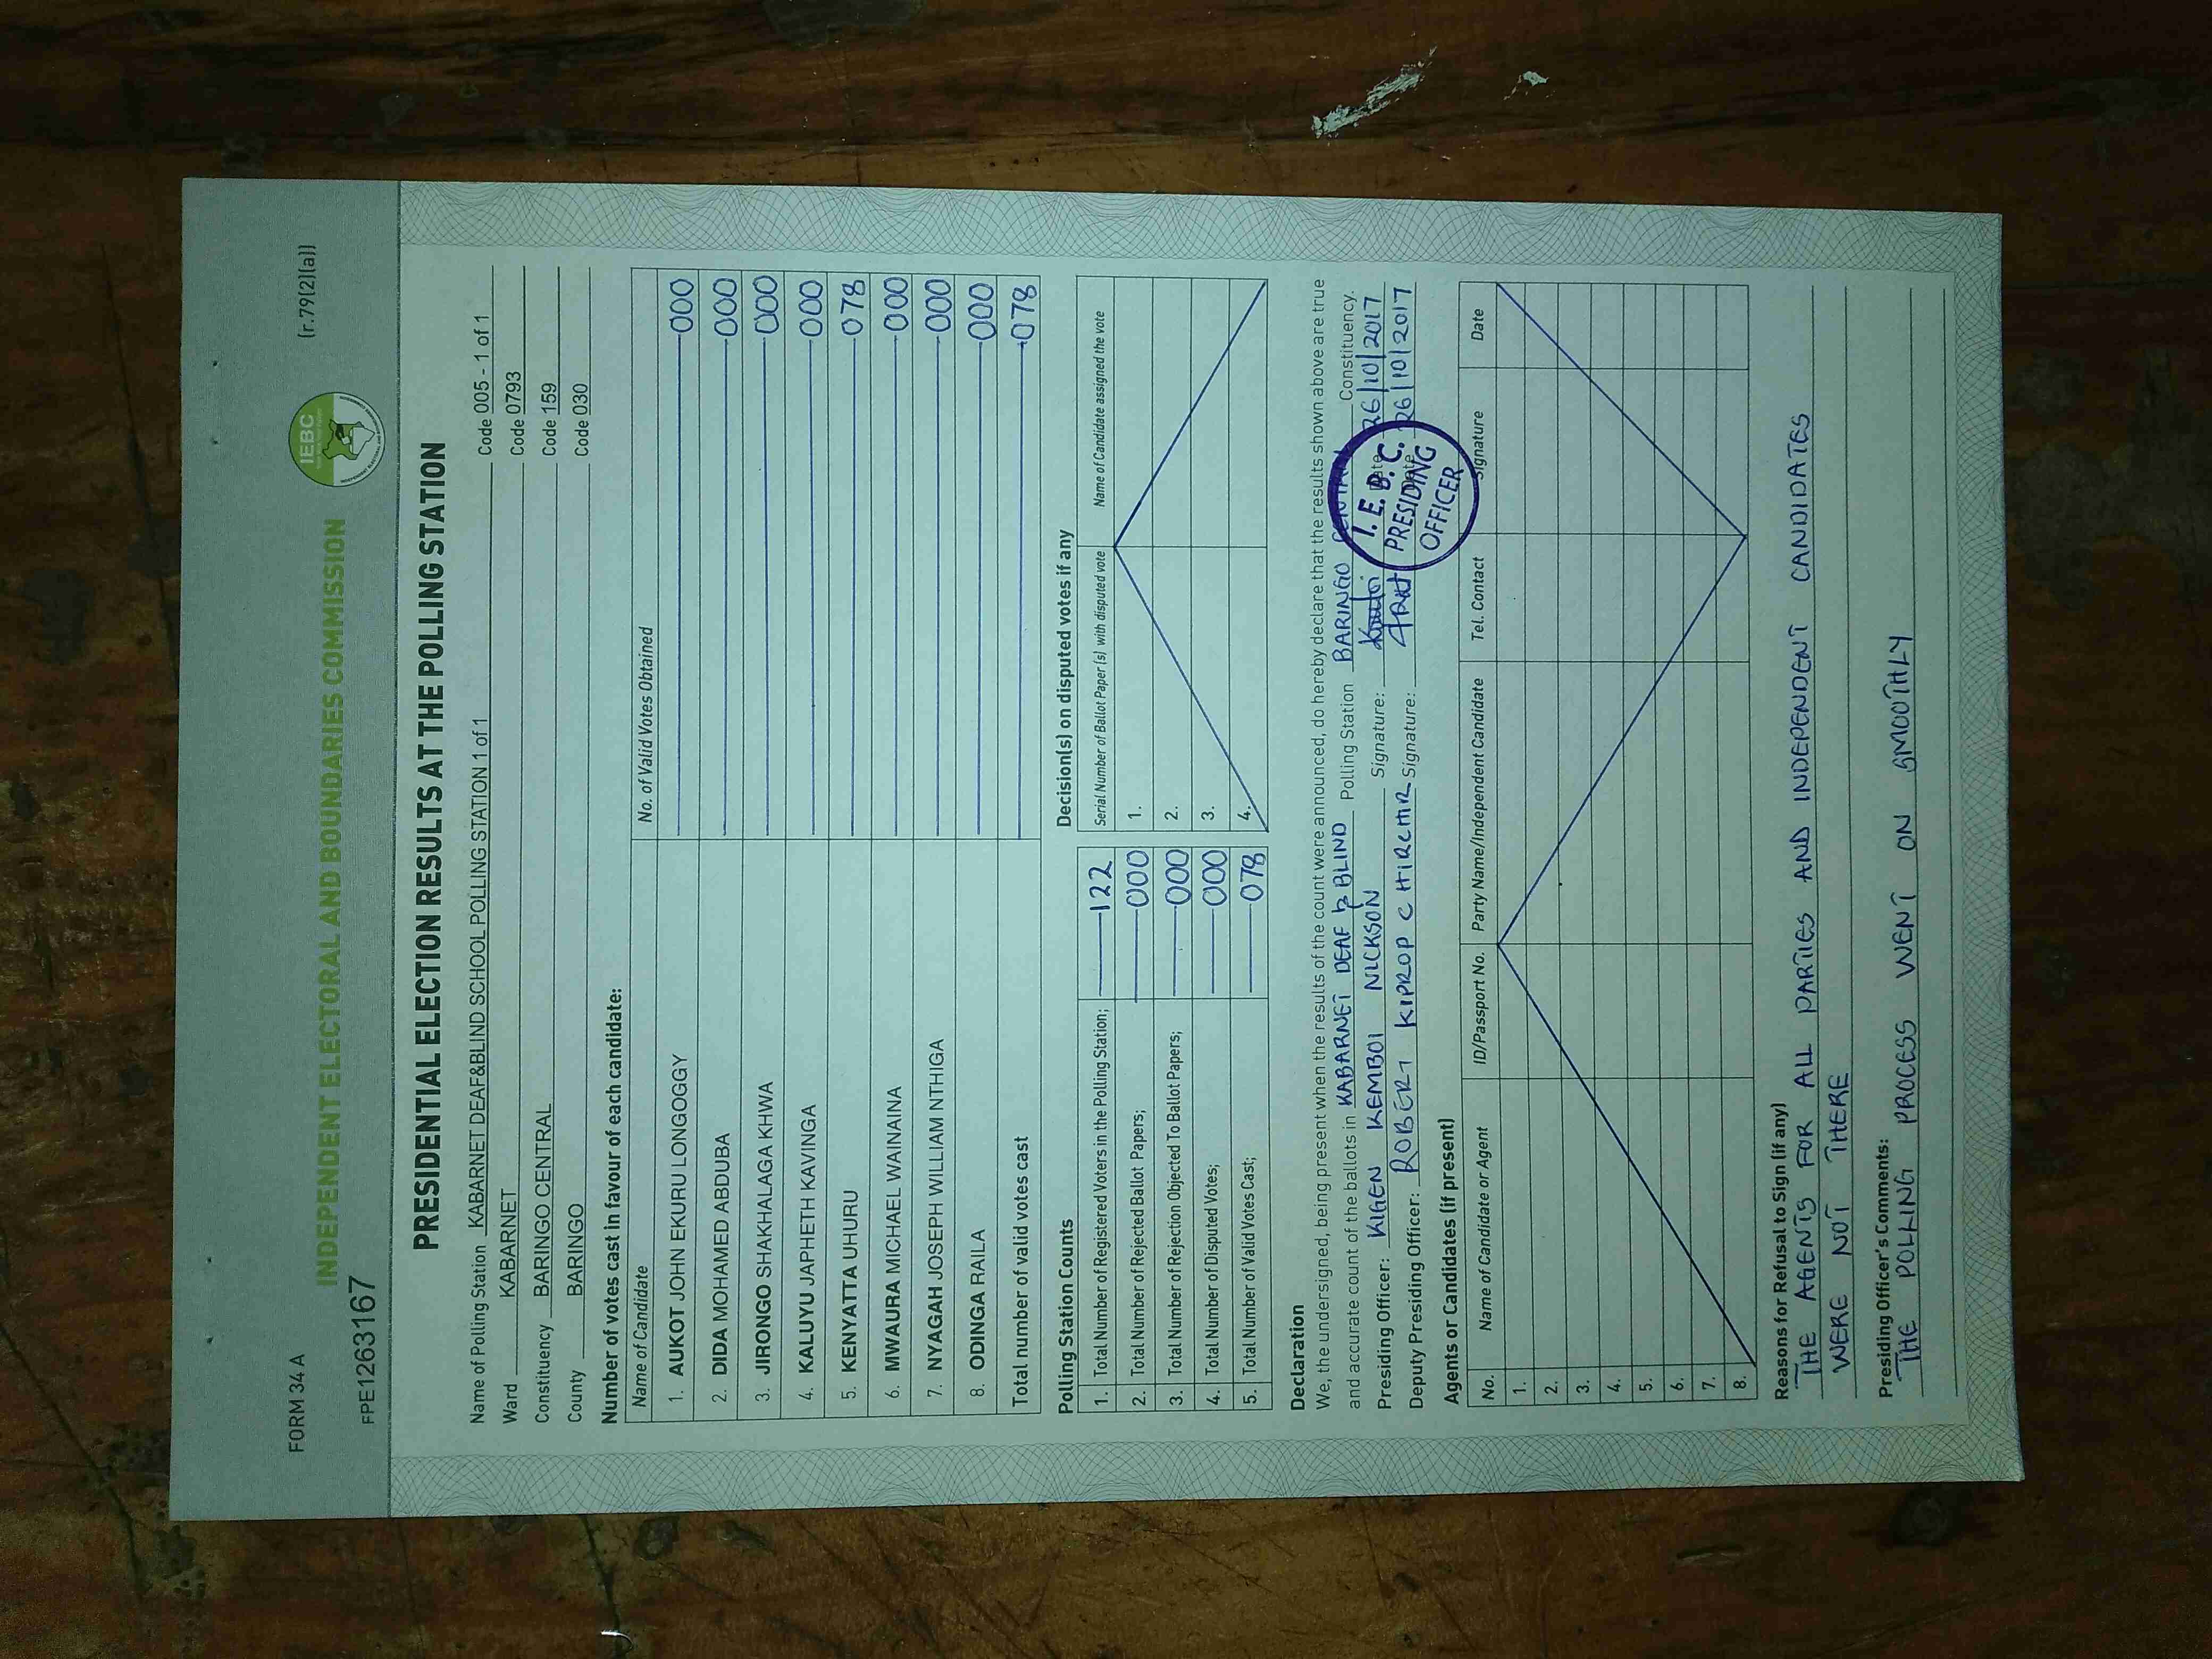 FORM 34 A
(r.79(2)(a))
IEBC
INDEPENDENT ELECTORAL AND BOUNDARIES COMMISSION
FPE1263167
PRESIDENTIAL ELECTION RESULTS AT THE POLLING STATION
Name of Polling Station KABARNET DEAF&BLIND SCHOOL POLLING STATION 1 of 1 Code 005 - 1 of 1
Ward KABARNET Code 0793
Constituency BARINGO CENTRAL Code 159
County BARINGO Code 030
Number of votes cast in favour of each candidate:
Name of Candidate No. of Valid Votes Obtained
1. AUKOT JOHN EKURU LONGOGGY 000
2. DIDA MOHAMED ABDUBA 000
3. JIRONGO SHAKHALAGA KHWA 000
4. KALUYU JAPHETH KAVINGA 000
5. KENYATTA UHURU 078
6. MWAURA MICHAEL WAINAINA 000
7. NYAGAH JOSEPH WILLIAM NTHIGA 000
8. ODINGA RAILA 000
Total number of valid votes cast 078
Polling Station Counts
1. Total Number of Registered Voters in the Polling Station; 122
2. Total Number of Rejected Ballot Papers; 000
3. Total Number of Rejection Objected To Ballot Papers; 000
4. Total Number of Disputed Votes; 000
5. Total Number of Valid Votes Cast; 078
Decision(s) on disputed votes if any
Serial Number of Ballot Paper (s) with disputed vote Name of Candidate assigned the vote
1.
2.
3.
4.
Declaration
We, the undersigned, being present when the results of the count were announced, do hereby declare that the results shown above are true
and accurate count of the ballots in KABARNET DEAF & BLIND Polling Station BARINGO CENTRAL Constituency.
Presiding Officer: KIGEN KEMBOI NICKSON Signature: Date 26/10/2017
Deputy Presiding Officer: ROBERT KIPROP Signature: Date 26/10/2017
I.E.B.C.
PRESIDING
OFFICER
Agents or Candidates (if present)
No. Name of Candidate or Agent ID/Passport No. Party Name/Independent Candidate Tel. Contact Signature Date
1.
2.
3.
4.
5.
6.
7.
8.
Reasons for Refusal to Sign (if any)
THE AGENTS FOR ALL PARTIES AND INDEPENDENT CANDIDATES
WERE NOT THERE
Presiding Officer's Comments:
THE POLLING PROCESS WENT ON SMOOTHLY